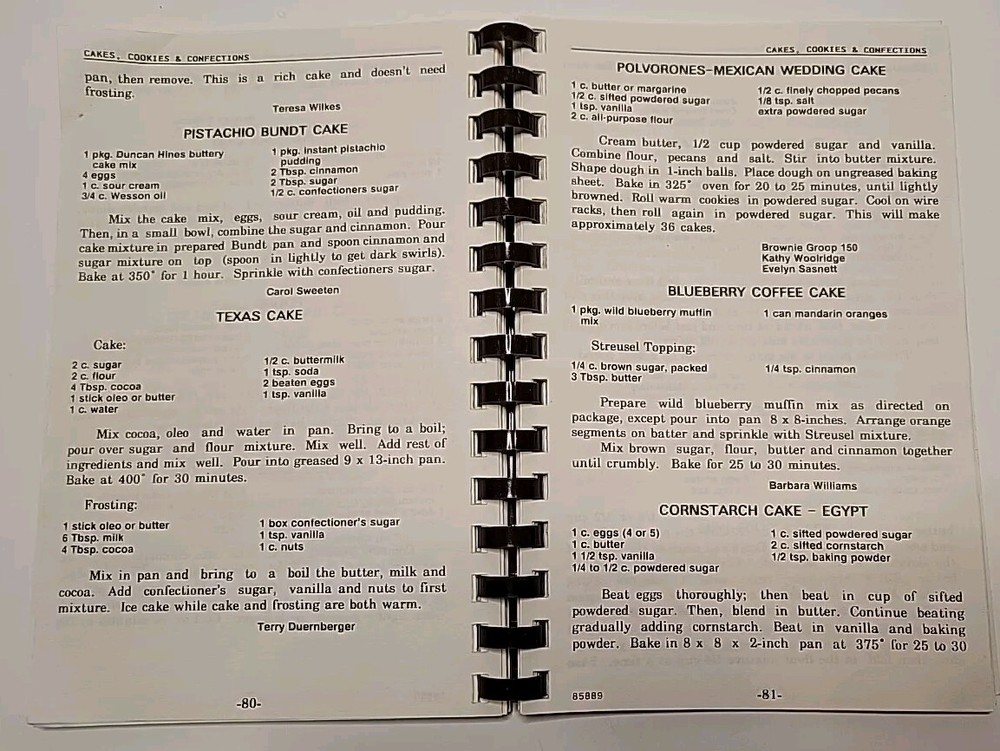 CAKES, COOKIES & CONFECTIONS
pan, then remove. This is a rich cake and doesn't need
frosting.
Teresa Wilkes
PISTACHIO BUNDT CAKE
1 pkg. Duncan Hines buttery
cake mix
4 eggs
1 c. sour cream
3/4 c. Wesson oil
1 pkg. instant pistachio
pudding
2 Tbsp. cinnamon
2 Tbsp. sugar
1/2 c. confectioners sugar
Mix the cake mix, eggs, sour cream, oil and pudding.
Then, in a small bowl, combine the sugar and cinnamon. Pour
cake mixture in prepared Bundt pan and spoon cinnamon and
sugar mixture on top (spoon in lightly to get dark swirls).
Bake at 350° for 1 hour. Sprinkle with confectioners sugar.
Carol Sweeten
TEXAS CAKE
Cake:
2 c. sugar
2 c. flour
4 Tbsp. cocoa
1 stick oleo or butter
1 c. water
1/2 c. buttermilk
1 tsp. soda
2 beaten eggs
1 tsp. vanilla
Mix cocoa, oleo and water in pan. Bring to a boil;
pour over sugar and flour mixture. Mix well. Add rest of
ingredients and mix well. Pour into greased 9 x 13-inch pan.
Bake at 400° for 30 minutes.
Frosting:
1 stick oleo or butter
6 Tbsp. milk
4 Tbsp. cocoa
1 box confectioner's sugar
1 tsp. vanilla
1 c. nuts
Mix in pan and bring to a boil the butter, milk and
cocoa. Add confectioner's sugar, vanilla and nuts to first
mixture. Ice cake while cake and frosting are both warm.
Terry Duernberger
-80-
CAKES, COOKIES & CONFECTIONS
POLVORONES-MEXICAN WEDDING CAKE
1 c. butter or margarine
1/2 c. sifted powdered sugar
1 tsp. vanilla
2 c. all-purpose flour
1/2 c. finely chopped pecans
1/8 tsp. salt
extra powdered sugar
Cream butter, 1/2 cup powdered sugar and vanilla.
Combine flour, pecans and salt. Stir into butter mixture.
Shape dough in 1-inch balls. Place dough on ungreased baking
sheet. Bake in 325° oven for 20 to 25 minutes, until lightly
browned. Roll warm cookies in powdered sugar. Cool on wire
racks, then roll again in powdered sugar. This will make
approximately 36 cakes.
Brownie Groop 150
Kathy Woolridge
Evelyn Sasnett
BLUEBERRY COFFEE CAKE
1 pkg. wild blueberry muffin
mix
1 can mandarin oranges
Streusel Topping:
1/4 c. brown sugar, packed
3 Tbsp. butter
1/4 tsp. cinnamon
Prepare wild blueberry muffin mix as directed on
package, except pour into pan 8 x 8-inches. Arrange orange
segments on batter and sprinkle with Streusel mixture.
Mix brown sugar, flour, butter and cinnamon together
until crumbly. Bake for 25 to 30 minutes.
Barbara Williams
CORNSTARCH CAKE - EGYPT
1 c. eggs (4 or 5)
1 c. butter
1 1/2 tsp. vanilla
1/4 to 1/2 c. powdered sugar
1 c. sifted powdered sugar
2 c. sifted cornstarch
1/2 tsp. baking powder
Beat eggs thoroughly; then beat in cup of sifted
powdered sugar. Then, blend in butter. Continue beating
gradually adding cornstarch. Beat in vanilla and baking
powder. Bake in 8 x 8 x 2-inch pan at 375° for 25 to 30
85889
-81-